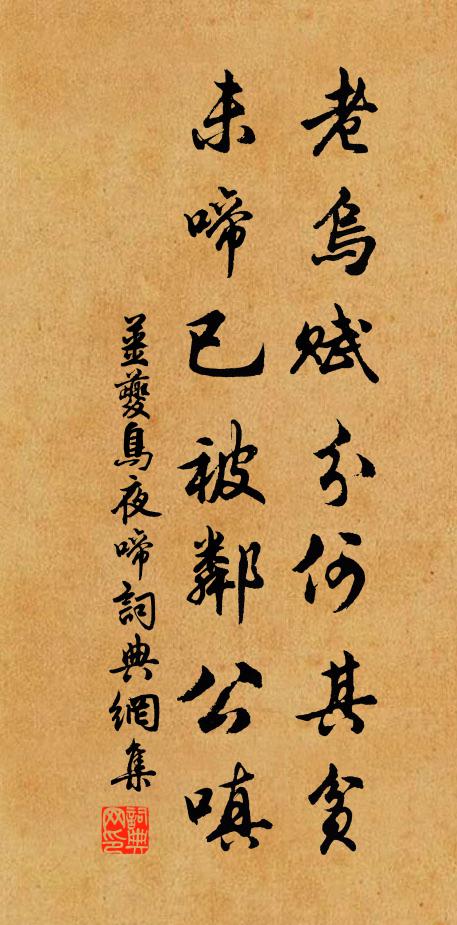 老烏賦分何其貧
未啼已被鄰公嗔
姜夔烏夜啼詞典網集
詞典网印